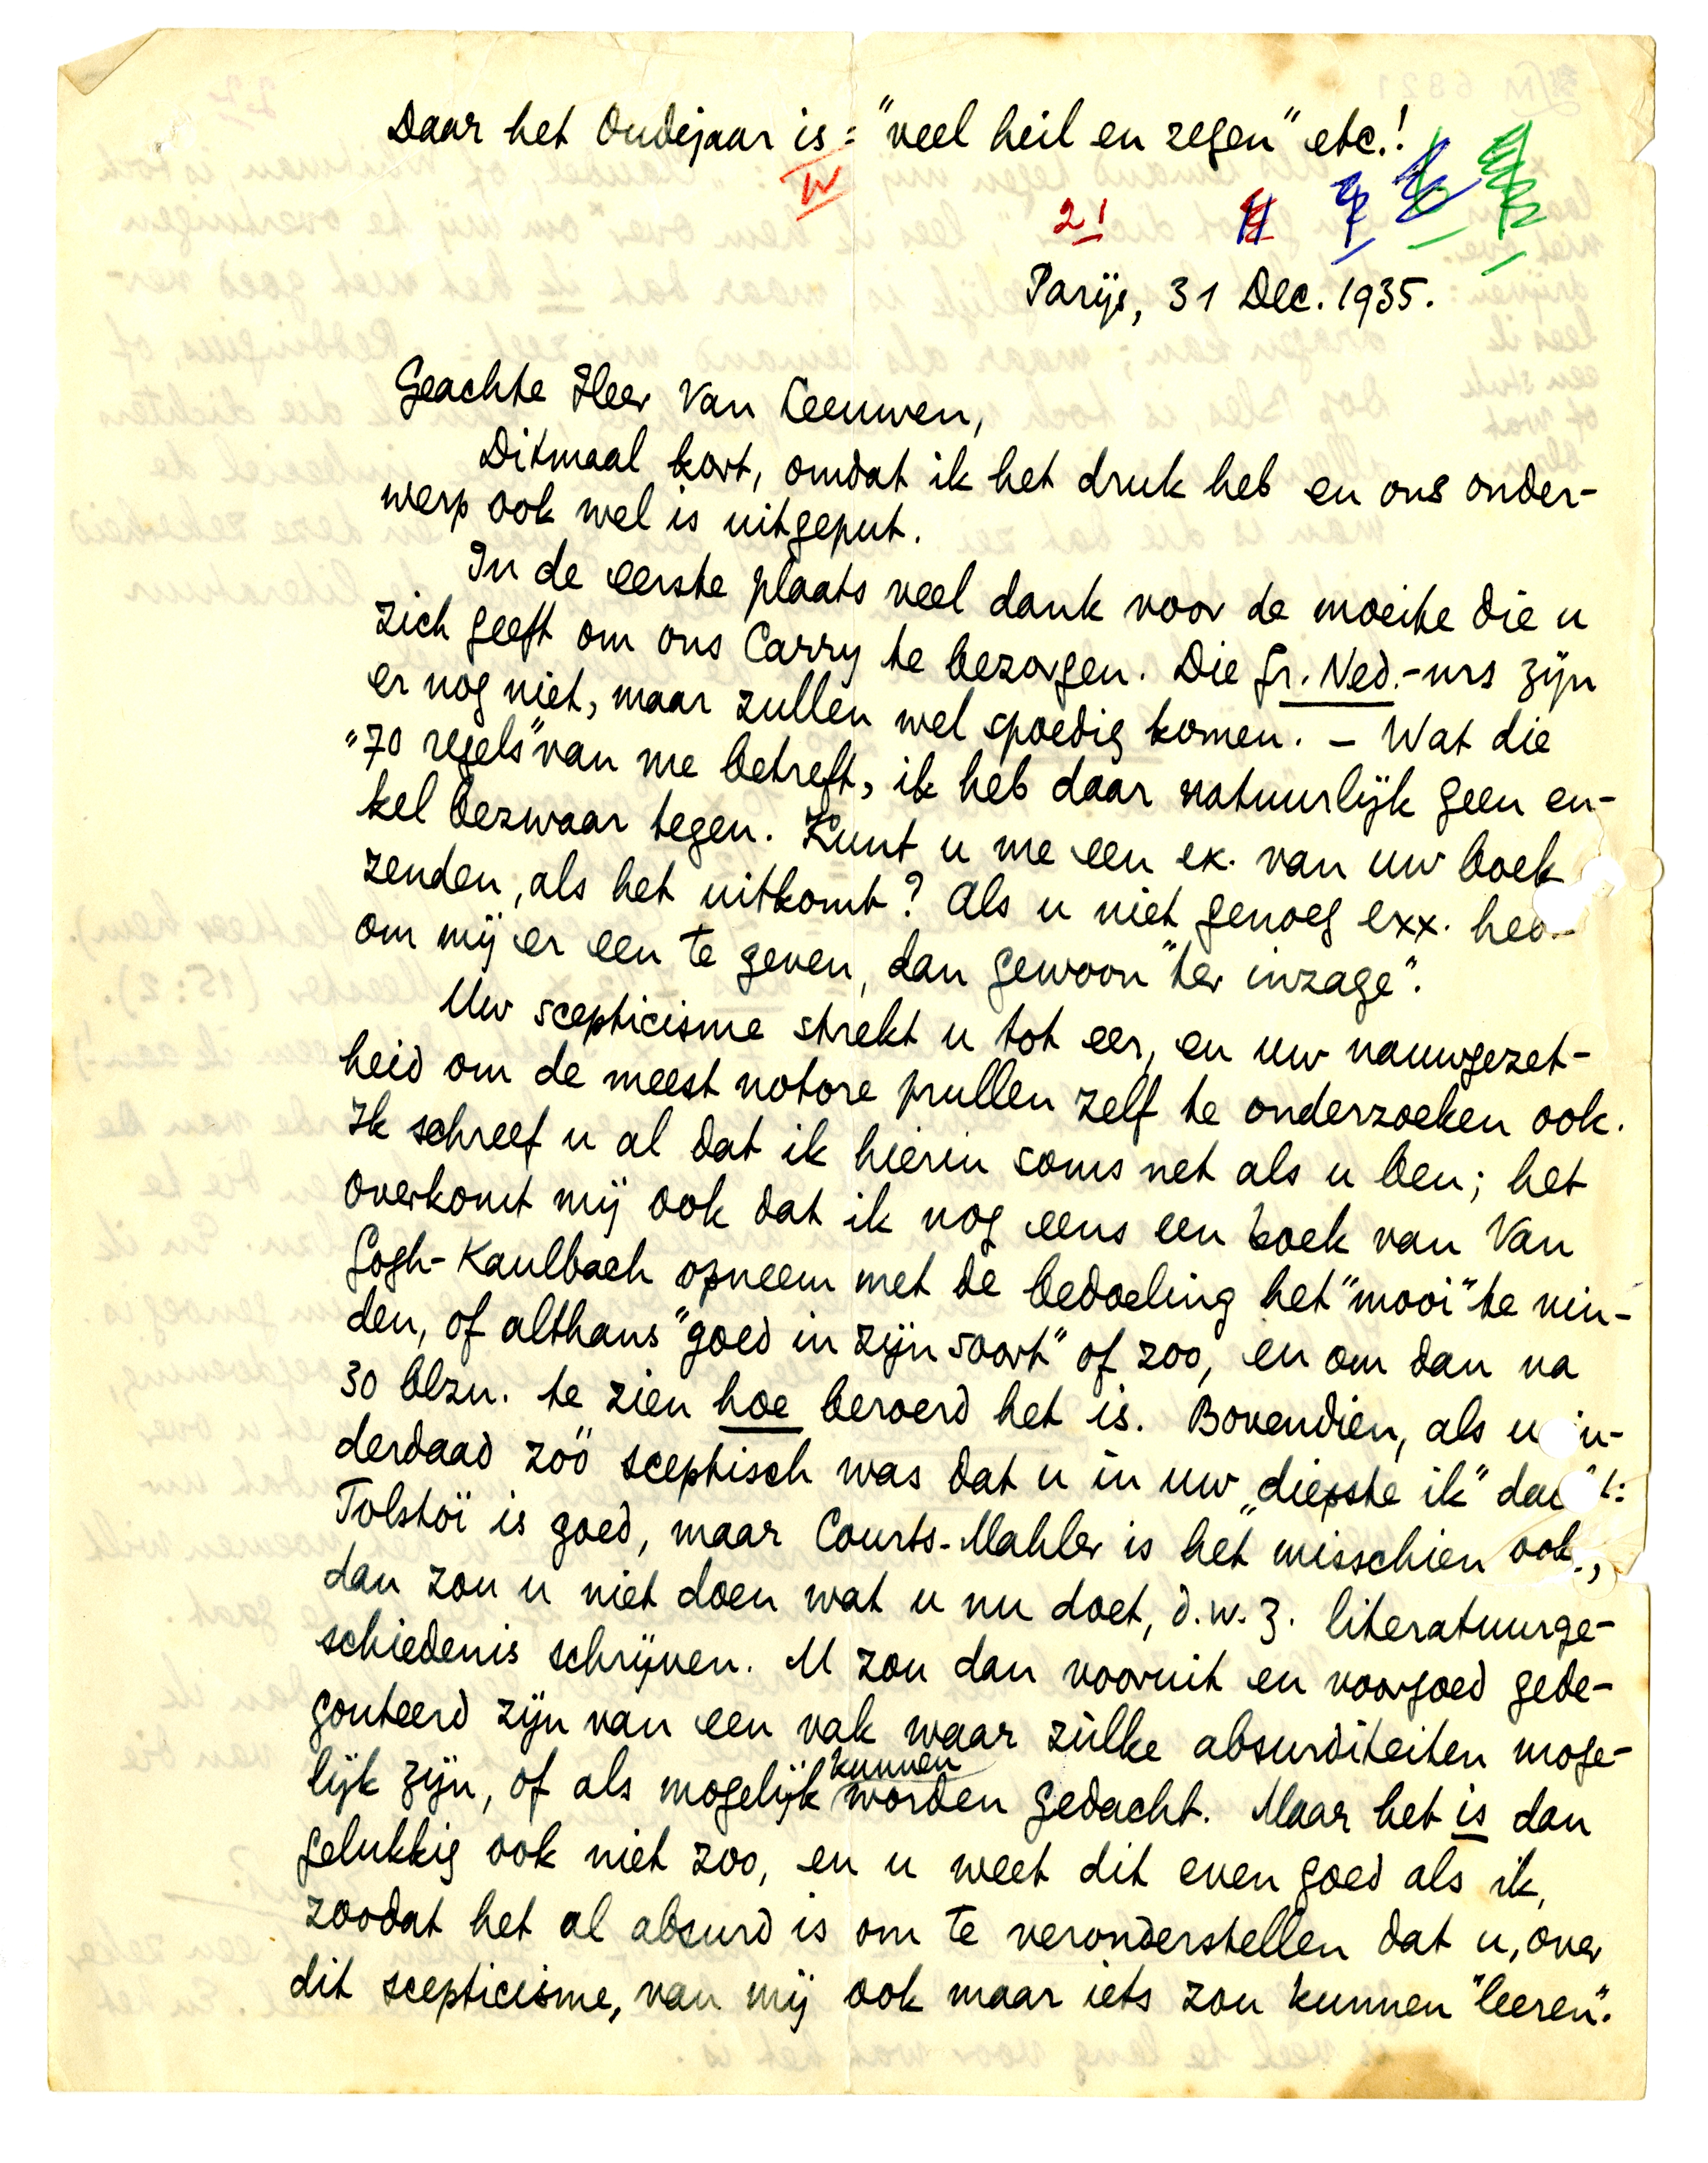 Daar het Oudejaar is: "veel heil en zegen" etc.!
IV
21
Parijs, 31 Dec. 1935.
Geachte Heer Van Leeuwen,
Ditmaal kort, omdat ik het druk heb en ons onder-
werp ook wel is uitgeput.
In de eerste plaats veel dank voor de moeite die u
zich geeft om ons Carry te bezorgen. Die Gr. Ned.-nrs zijn
er nog niet, maar zullen wel spoedig komen. – Wat die
"70 regels" van me betreft, ik heb daar natuurlijk geen en-
kel bezwaar tegen. Kunt u me een ex. van uw boek
zenden, als het uitkomt? Als u niet genoeg exx. heb
om mij er een te geven, dan gewoon "ter inzage".
Uw scepticisme strekt u tot eer, en uw nauwgezet-
heid om de meest notore prullen zelf te onderzoeken ook.
Ik schreef u al dat ik hierin soms net als u ben; het
overkomt mij ook dat ik nog eens een boek van Van
Gogh-Kaulbach opneem met de bedoeling het "mooi" te vin-
den, of althans "goed in zijn soort" of zoo, en om dan na
30 blzn. te zien hoe beroerd het is. Bovendien, als u in-
derdaad zóó sceptisch was dat u in uw "diepste ik" dacht:
Tolstoï is goed, maar Courts-Mahler is het misschien ook,
dan zou u niet doen wat u nu doet, d.w.z. literatuurge-
schiedenis schrijven. U zou dan vooruit en voorgoed gede-
gouteerd zijn van een vak waar zúlke absurditeiten moge-
lijk zijn, of als mogelijk kunnen worden gedacht. Maar het is dan
gelukkig ook niet zoo, en u weet dit even goed als ik,
zoodat het al absurd is om te veronderstellen dat u, over
dit scepticisme, van mij ook maar iets zou kunnen "leeren".